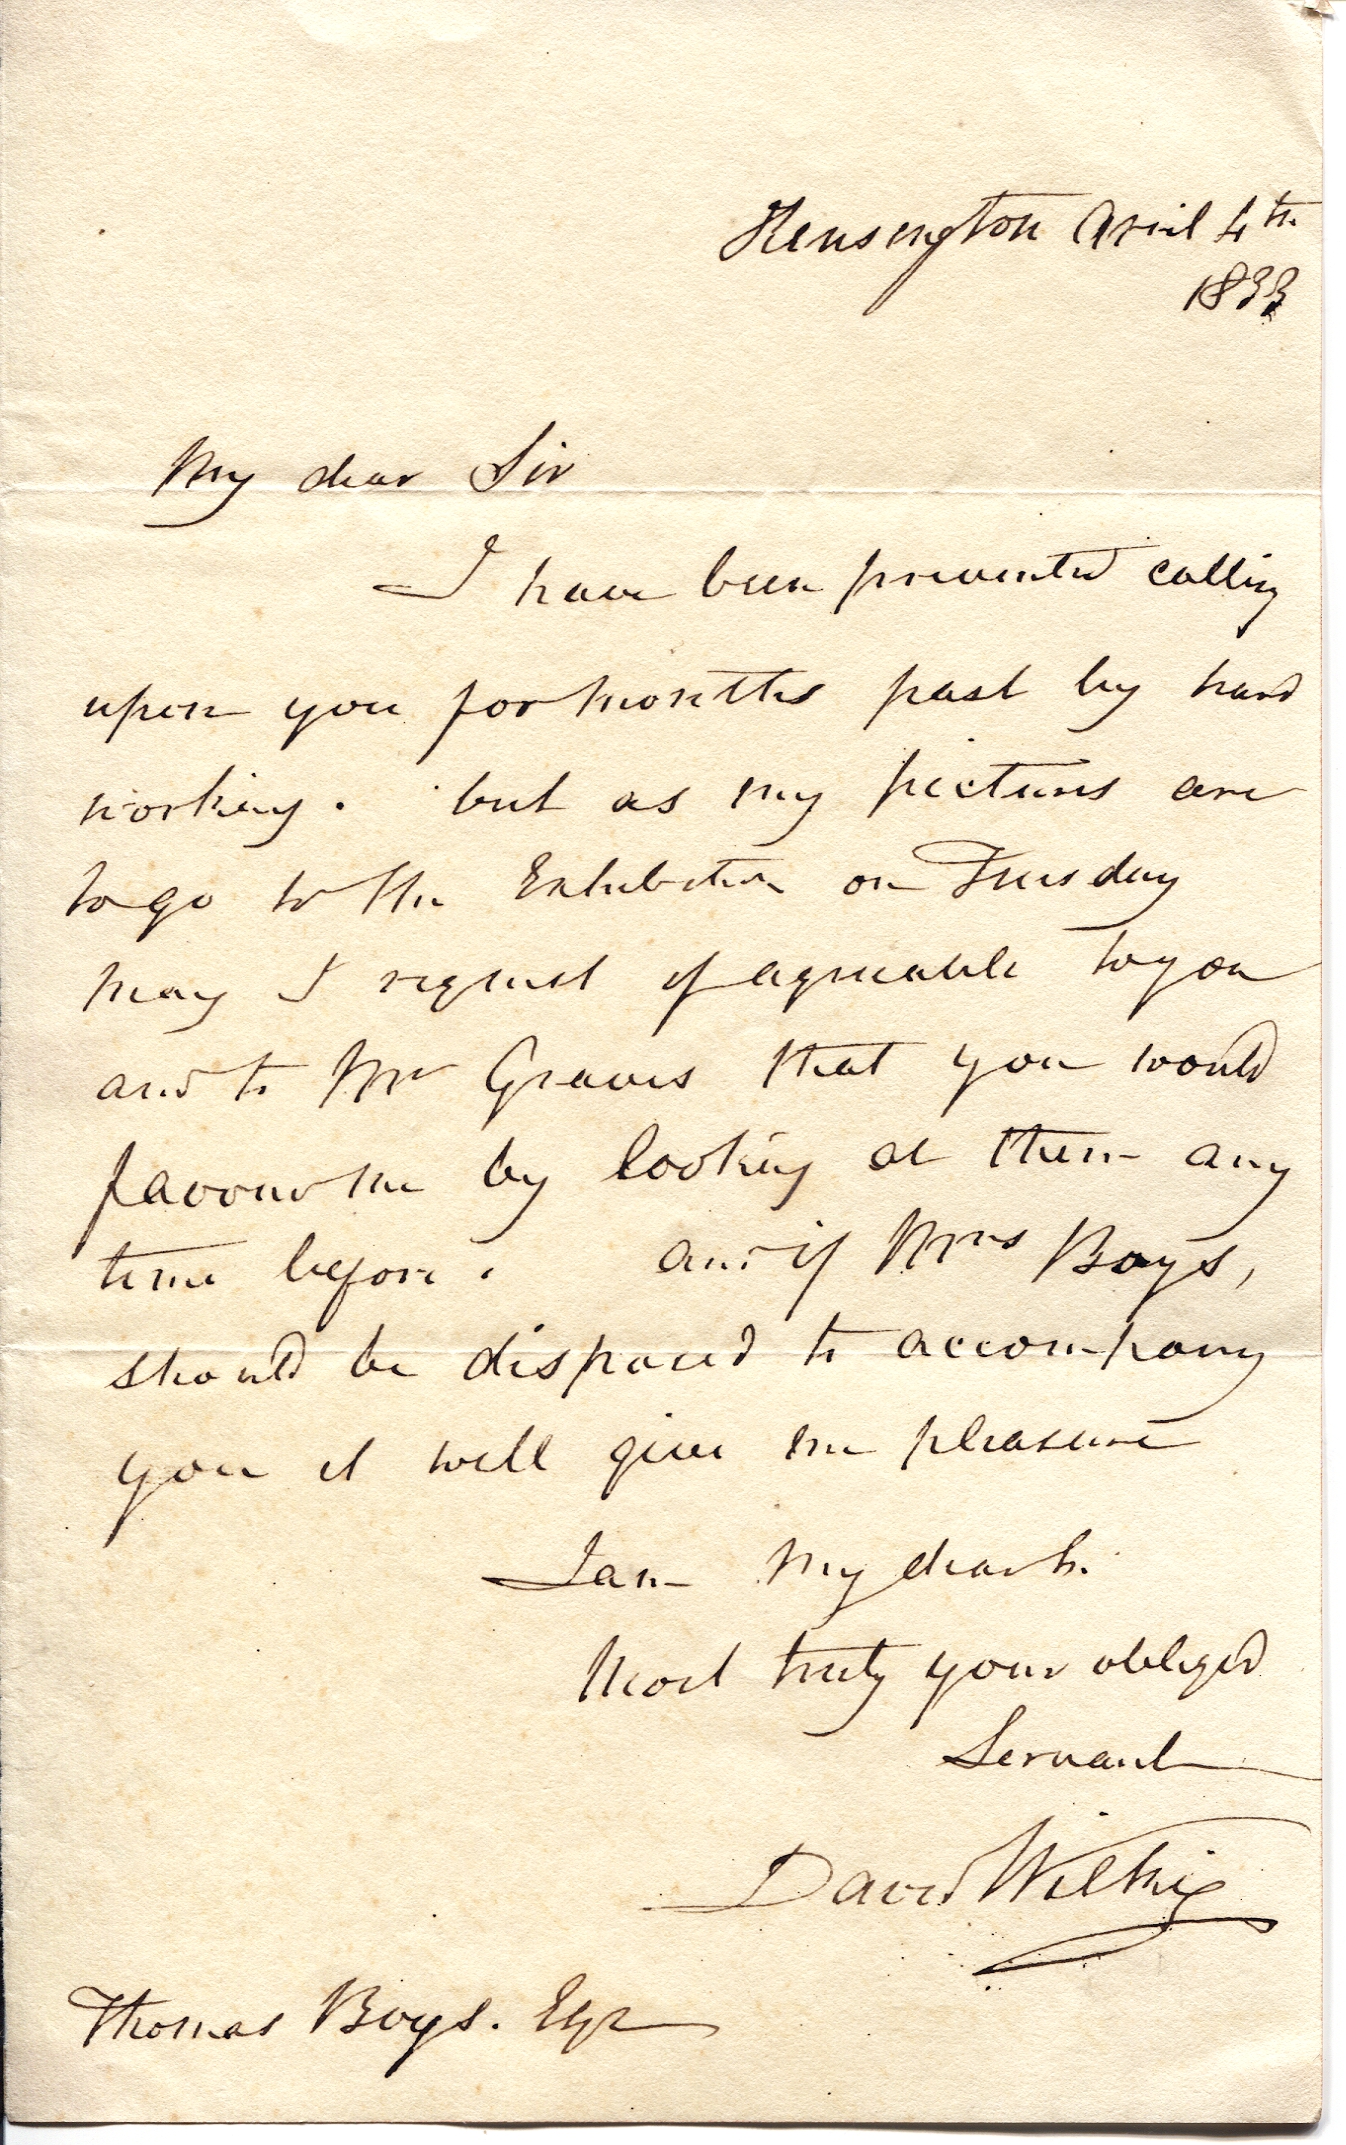 Kensington April 4th
1833
My dear Sir
I have been prevented calling
upon you for months past by hard
working. but as my pictures are
to go to the Exhibition on Tuesday
may I request if agreeable to you
and to Mr Graves that you would
favour me by looking at them any
time before. and if Mrs Boys,
should be disposed to accompany
you it will give me pleasure
I am My dear Sr.
Most truly your obliged
Servant
David Wilkie
Thomas Boys. Esqr